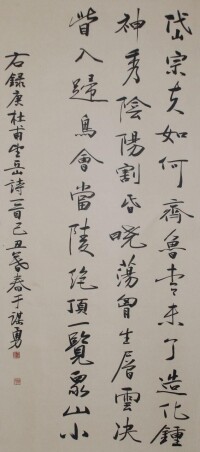 岱宗夫如何齊魯青未了造化鍾
神秀陰陽割昏曉蕩胷生層雲決
眥入歸鳥會當陵絕頂一覽眾山小
右錄唐杜甫望岳詩一首己丑暮春于謀勇